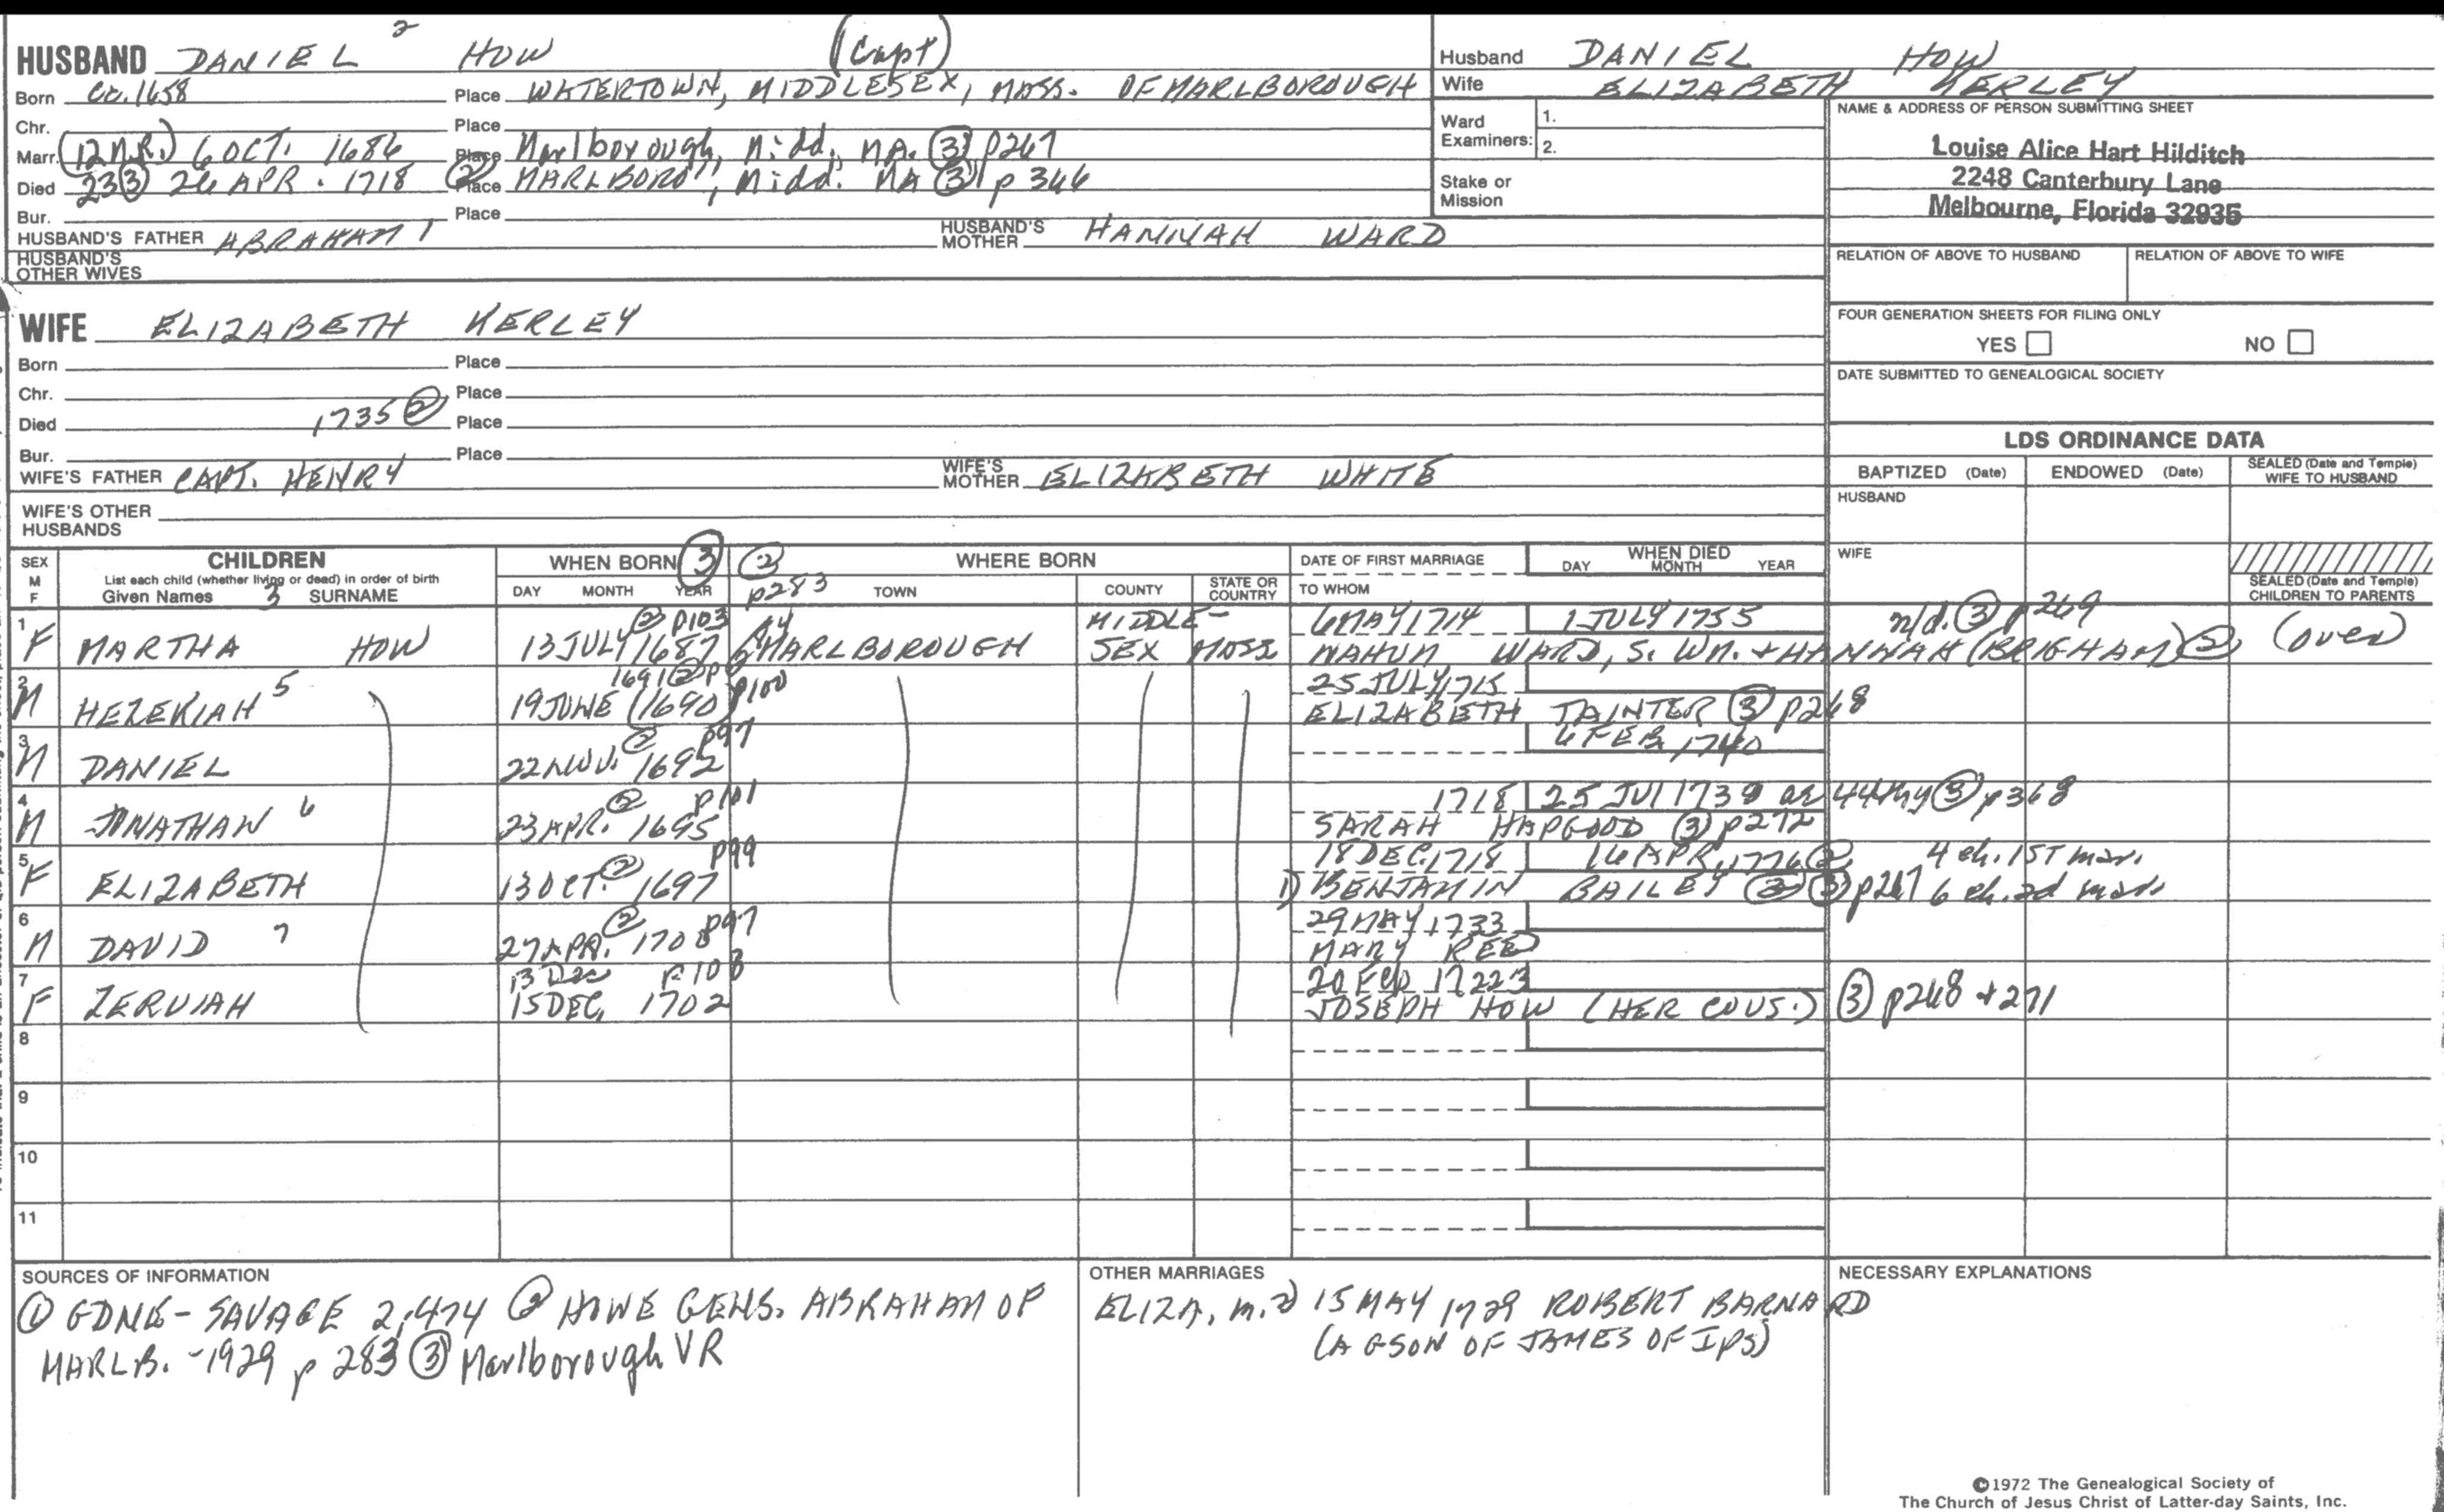 HUSBAND DANIEL 2 HOW (Capt)
Born ca. 1658 Place WATERTOWN, MIDDLESEX, MASS. OF MARLBOROUGH
Chr. Place
Marr. (12 M.R.) 6 OCT. 1686 Place Marlborough, Midd., MA. ③ p267
Died 23③ 26 APR. 1718 ② Place MARLBORO", Midd. MA ③ p 366
Bur. Place
HUSBAND'S FATHER ABRAHAM 1 HUSBAND'S MOTHER HANNAH WARD
HUSBAND'S OTHER WIVES
Husband DANIEL HOW
Wife ELIZABETH KERLEY
Ward Examiners: 1.
2.
Stake or Mission
NAME & ADDRESS OF PERSON SUBMITTING SHEET
Louise Alice Hart Hilditch
2248 Canterbury Lane
Melbourne, Florida 32935
RELATION OF ABOVE TO HUSBAND RELATION OF ABOVE TO WIFE
FOUR GENERATION SHEETS FOR FILING ONLY
YES NO
DATE SUBMITTED TO GENEALOGICAL SOCIETY
WIFE ELIZABETH KERLEY
Born Place
Chr. Place
Died 1735 ② Place
Bur. Place
WIFE'S FATHER CAPT. HENRY WIFE'S MOTHER ELIZABETH WHITE
WIFE'S OTHER HUSBANDS
LDS ORDINANCE DATA
BAPTIZED (Date) ENDOWED (Date) SEALED (Date and Temple) WIFE TO HUSBAND
HUSBAND
WIFE
SEALED (Date and Temple) CHILDREN TO PARENTS
SEX M F
CHILDREN
List each child (whether living or dead) in order of birth
Given Names 3 SURNAME
WHEN BORN ③ ② p283 WHERE BORN
DAY MONTH YEAR TOWN COUNTY STATE OR COUNTRY
DATE OF FIRST MARRIAGE
TO WHOM
WHEN DIED
DAY MONTH YEAR
② p103 MIDDLE- 6 MAY 1714 1 JULY 1755 n/d. ③ p269
1 F MARTHA HOW 13 JULY 1687 MARLBOROUGH SEX MASS NAHUM WARD, S. WM. + HANNAH (BRIGHAM) ② (over)
1691 ② p100 25 JULY 1715
2 M HEZEKIAH 5 19 JUNE (1690) ELIZABETH TAINTER ③ p268
② p97 6 FEB 1740
3 M DANIEL 22 NOV. 1692
② p101 1718 25 JUL 1738 or 44 My ③ p368
4 M JONATHAN 6 23 APR. 1695 SARAH HAPGOOD ③ p272
② p99 18 DEC. 1718 16 APR. 1776 ② 4 ch. 1ST mar.
5 F ELIZABETH 13 OCT. 1697 1) BENJAMIN BAILEY ② ③ p267 6 ch. 2d mar.
② p97 29 MAY 1733
6 M DAVID 7 27 APR. 1708 MARY REED
13 Dec p108 20 Feb 17223
7 F ZERUIAH 15 DEC, 1702 JOSEPH HOW (HER COUS.) ③ p268 + 271
8
9
10
11
SOURCES OF INFORMATION
① GDNE - SAVAGE 2:474 ② HOWE GENS. ABRAHAM OF
MARLB. - 1929 p 283 ③ Marlborough VR
OTHER MARRIAGES
ELIZA, m. 2) 15 MAY 1729 ROBERT BARNARD
(A GSON OF JAMES OF IPS)
NECESSARY EXPLANATIONS
©1972 The Genealogical Society of
The Church of Jesus Christ of Latter-day Saints, Inc.